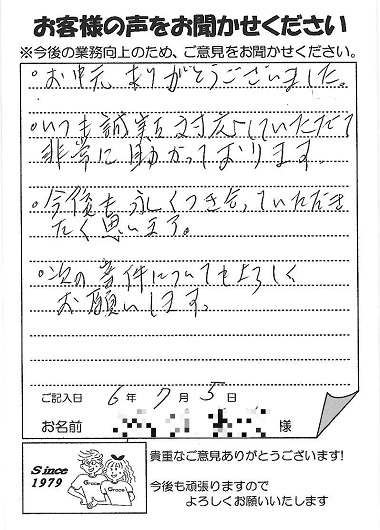 お客様の声をお聞かせください
※今後の業務向上のため、ご意見をお聞かせください。
○お中元ありがとうございました。
○いつも誠実な対応していただて
非常に助かっております。
○今後も永くつき合っていただき
たく思います。
○次の案件についてもよろしく
お願いします。
ご記入日 6年 7月 5日
お名前 様
Since
1979
Grace
Grace
貴重なご意見ありがとうございます!
今後も頑張りますので
よろしくお願いいたします